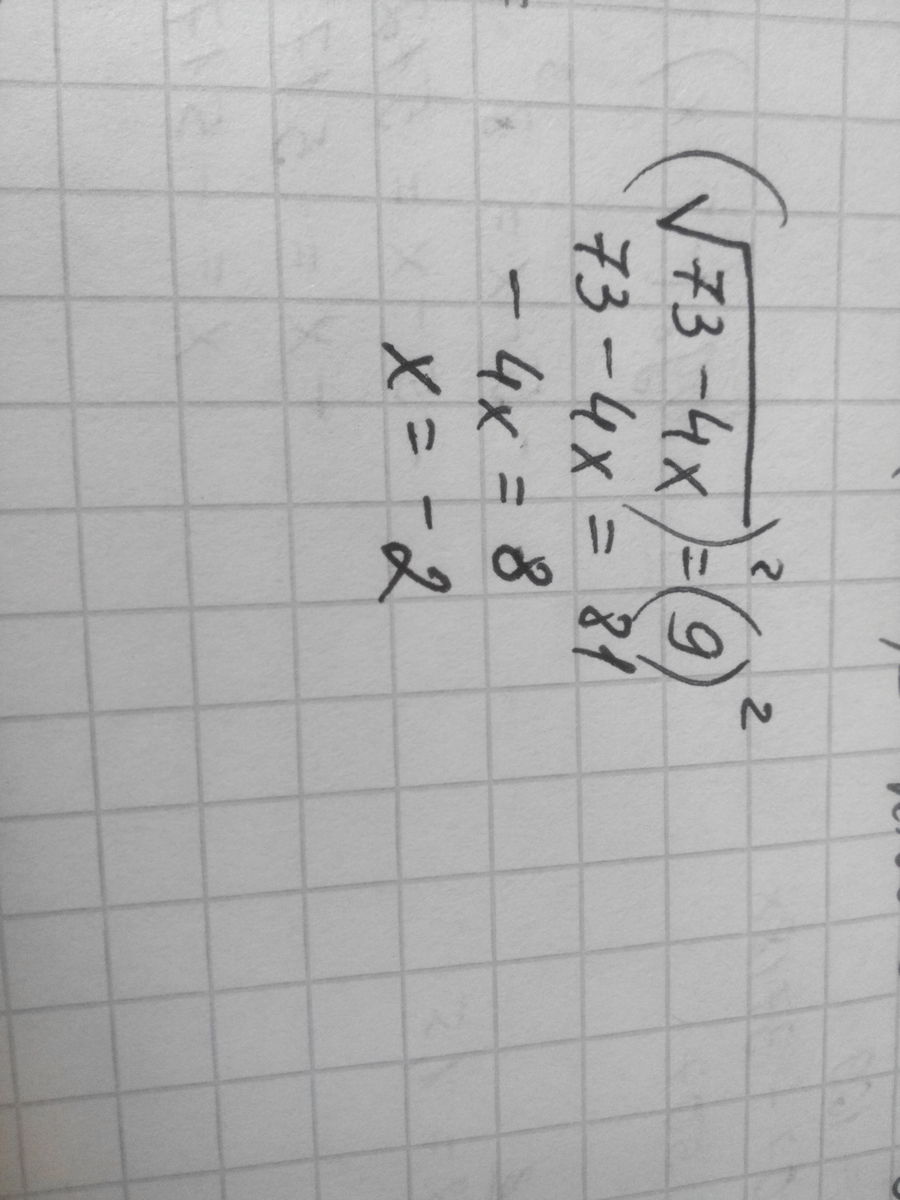 (√73-4x)² = (9)²
73-4x = 81
-4x = 8
x = -2